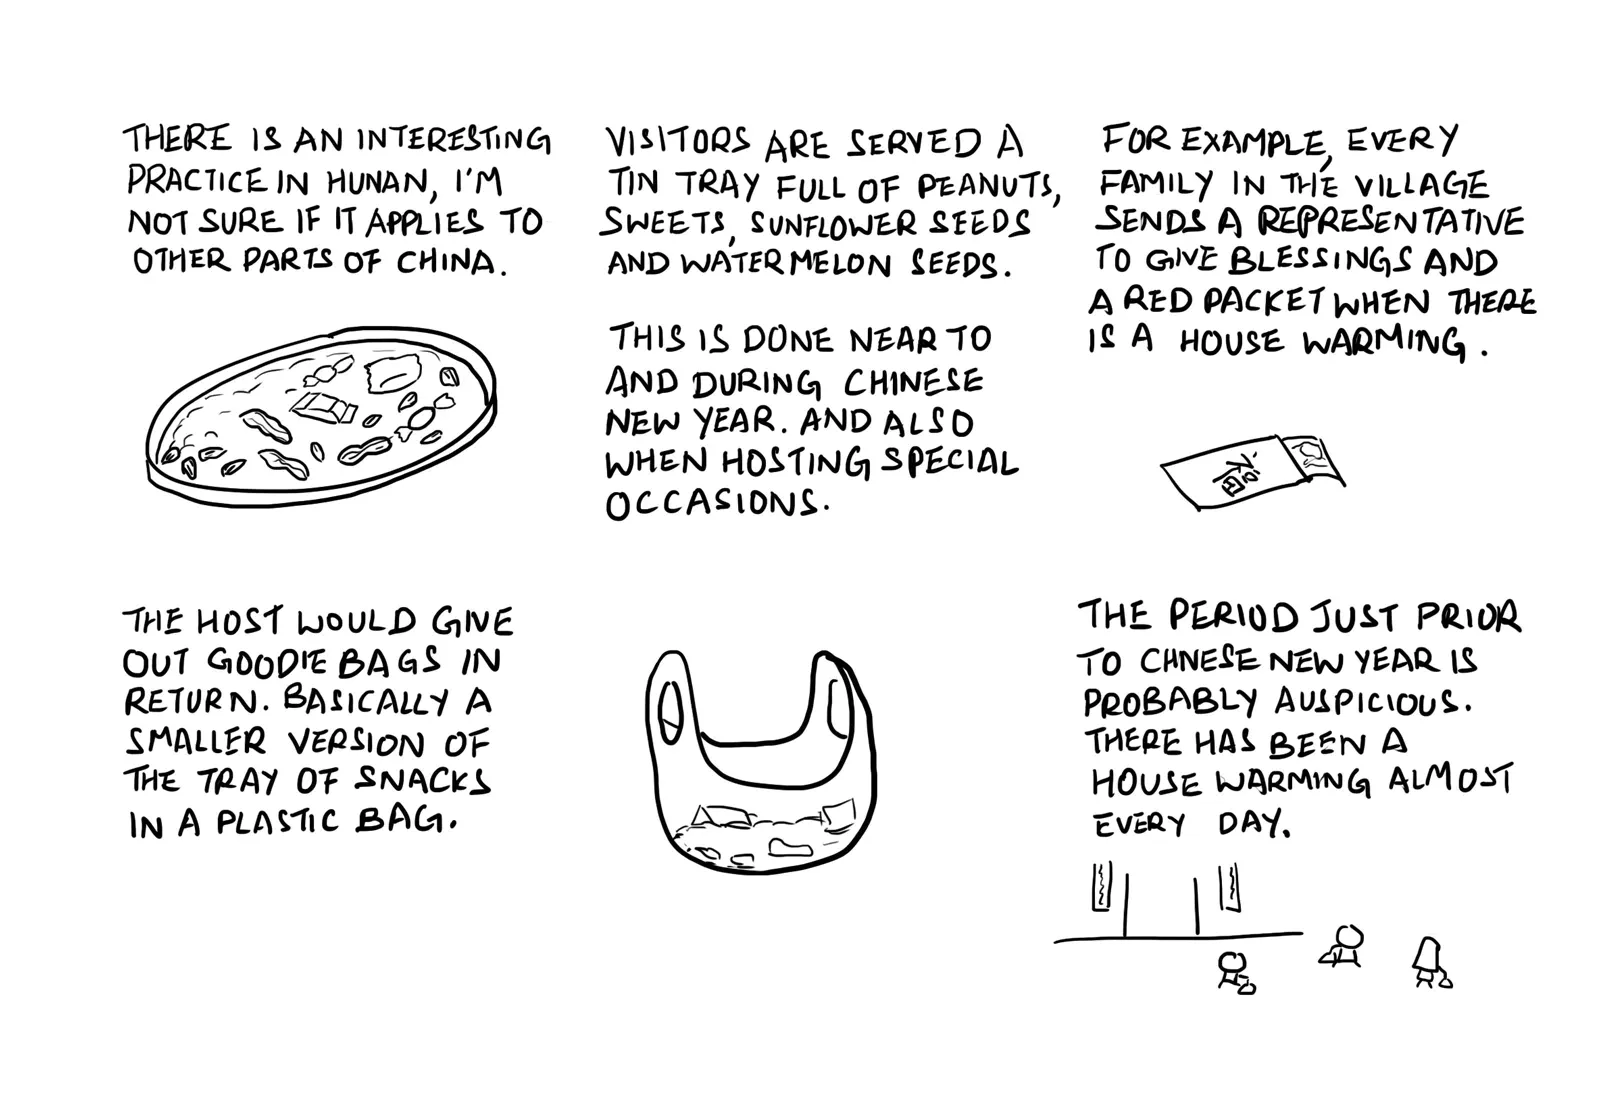 THERE IS AN INTERESTING
PRACTICE IN HUNAN, I'M
NOT SURE IF IT APPLIES TO
OTHER PARTS OF CHINA.
VISITORS ARE SERVED A
TIN TRAY FULL OF PEANUTS,
SWEETS, SUNFLOWER SEEDS
AND WATERMELON SEEDS.
THIS IS DONE NEAR TO
AND DURING CHINESE
NEW YEAR. AND ALSO
WHEN HOSTING SPECIAL
OCCASIONS.
FOR EXAMPLE, EVERY
FAMILY IN THE VILLAGE
SENDS A REPRESENTATIVE
TO GIVE BLESSINGS AND
A RED PACKET WHEN THERE
IS A HOUSE WARMING.
福
THE HOST WOULD GIVE
OUT GOODIE BAGS IN
RETURN. BASICALLY A
SMALLER VERSION OF
THE TRAY OF SNACKS
IN A PLASTIC BAG.
THE PERIOD JUST PRIOR
TO CHNESE NEW YEAR IS
PROBABLY AUSPICIOUS.
THERE HAS BEEN A
HOUSE WARMING ALMOST
EVERY DAY.